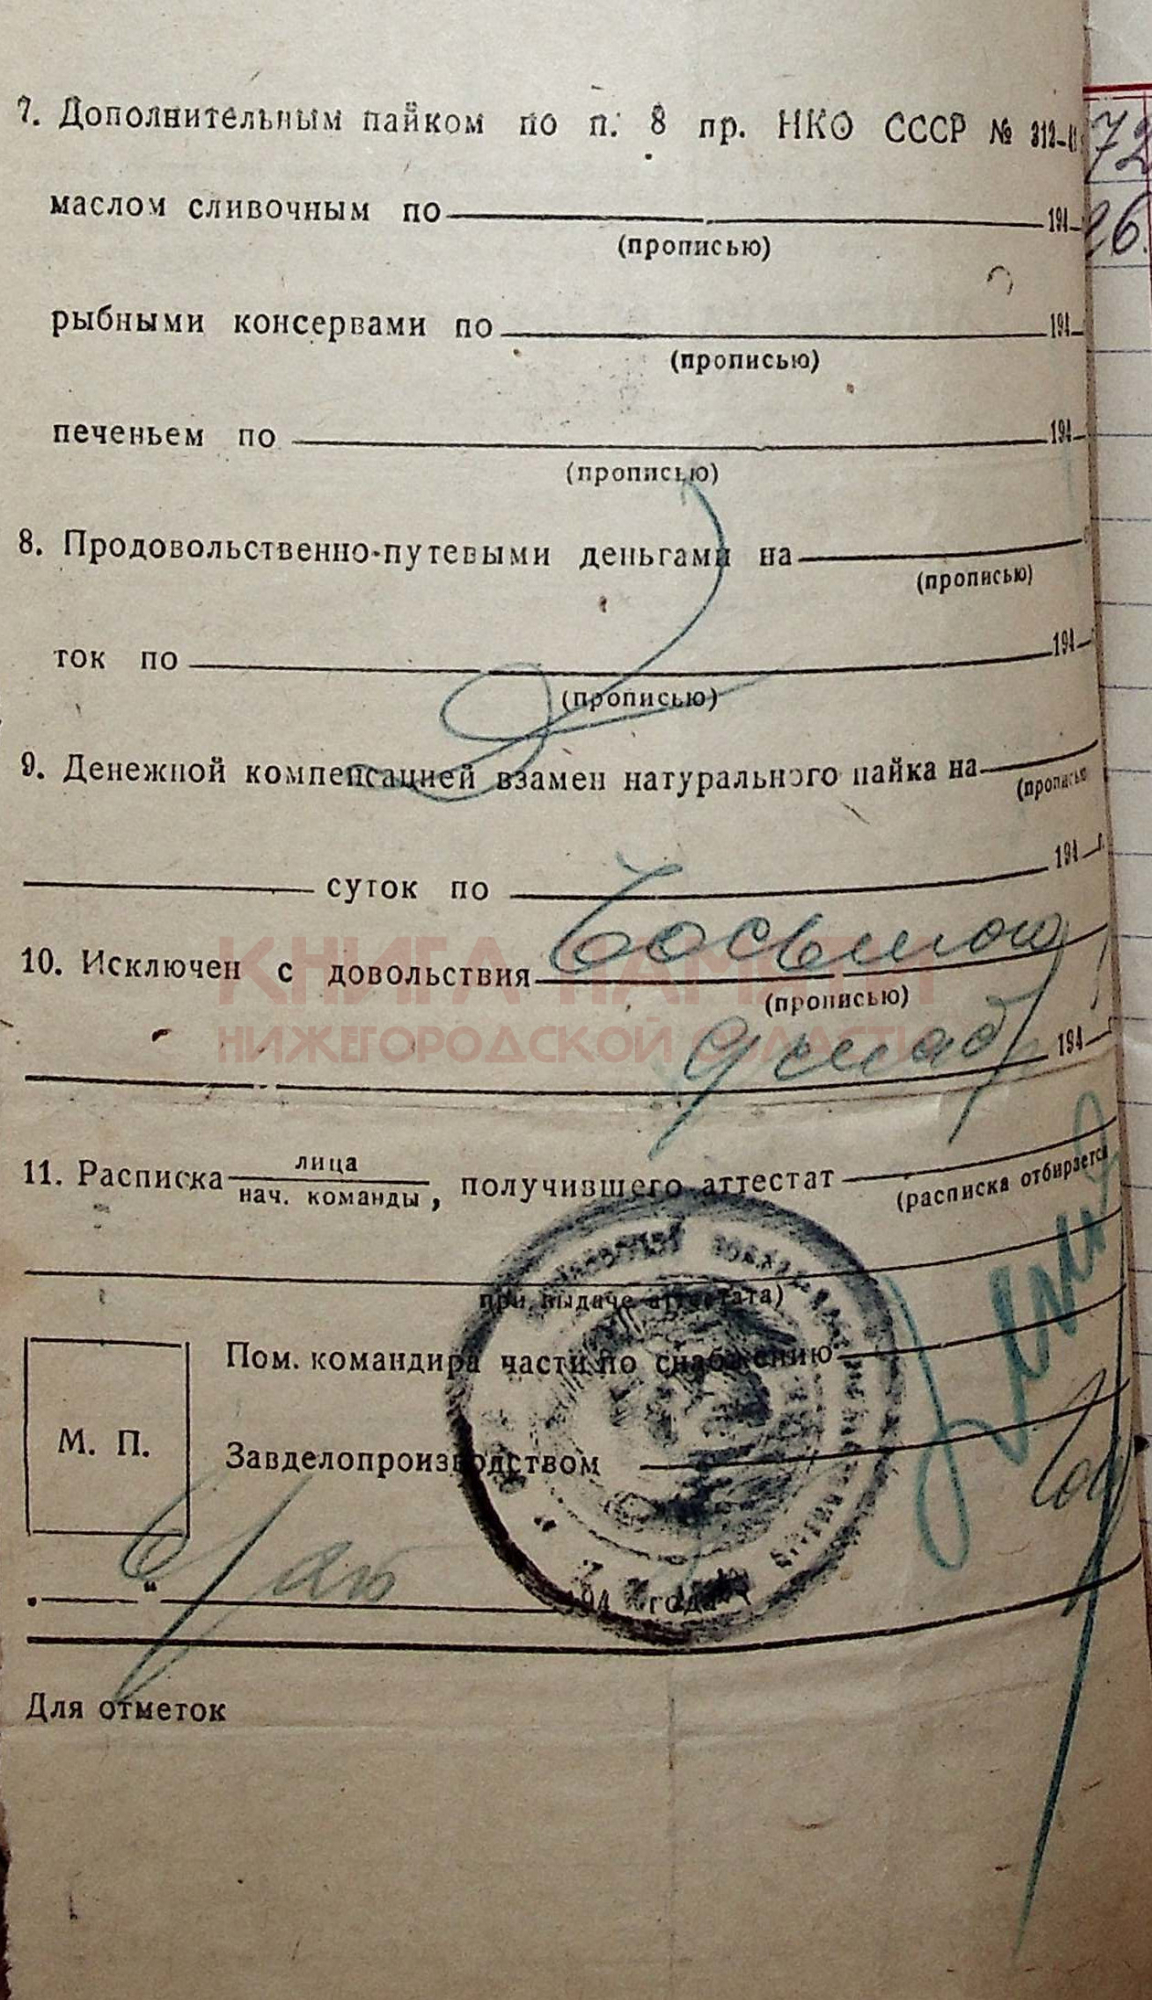 7. Дополнительным пайком по п. 8 пр. НКО СССР № 312-41
72
маслом сливочным по 194
26.
(прописью)
рыбными консервами по 194
(прописью)
печеньем по 194
(прописью)
8. Продовольственно-путевыми деньгами на
(прописью)
ток по 194
(прописью)
9. Денежной компенсацией взамен натурального пайка на
(прописью
суток по 194 г.
10. Исключен с довольствия
(прописью)
КНИГА ПАМЯТИ
НИЖЕГОРОДСКОЙ ОБЛАСТИ
194 г.
11. Расписка лица
нач. команды, получившего аттестат
(расписка отбирается
при выдаче аттестата)
Пом. командира части по снабжению
М. П.
Завделопроизводством
" 194 года
Для отметок